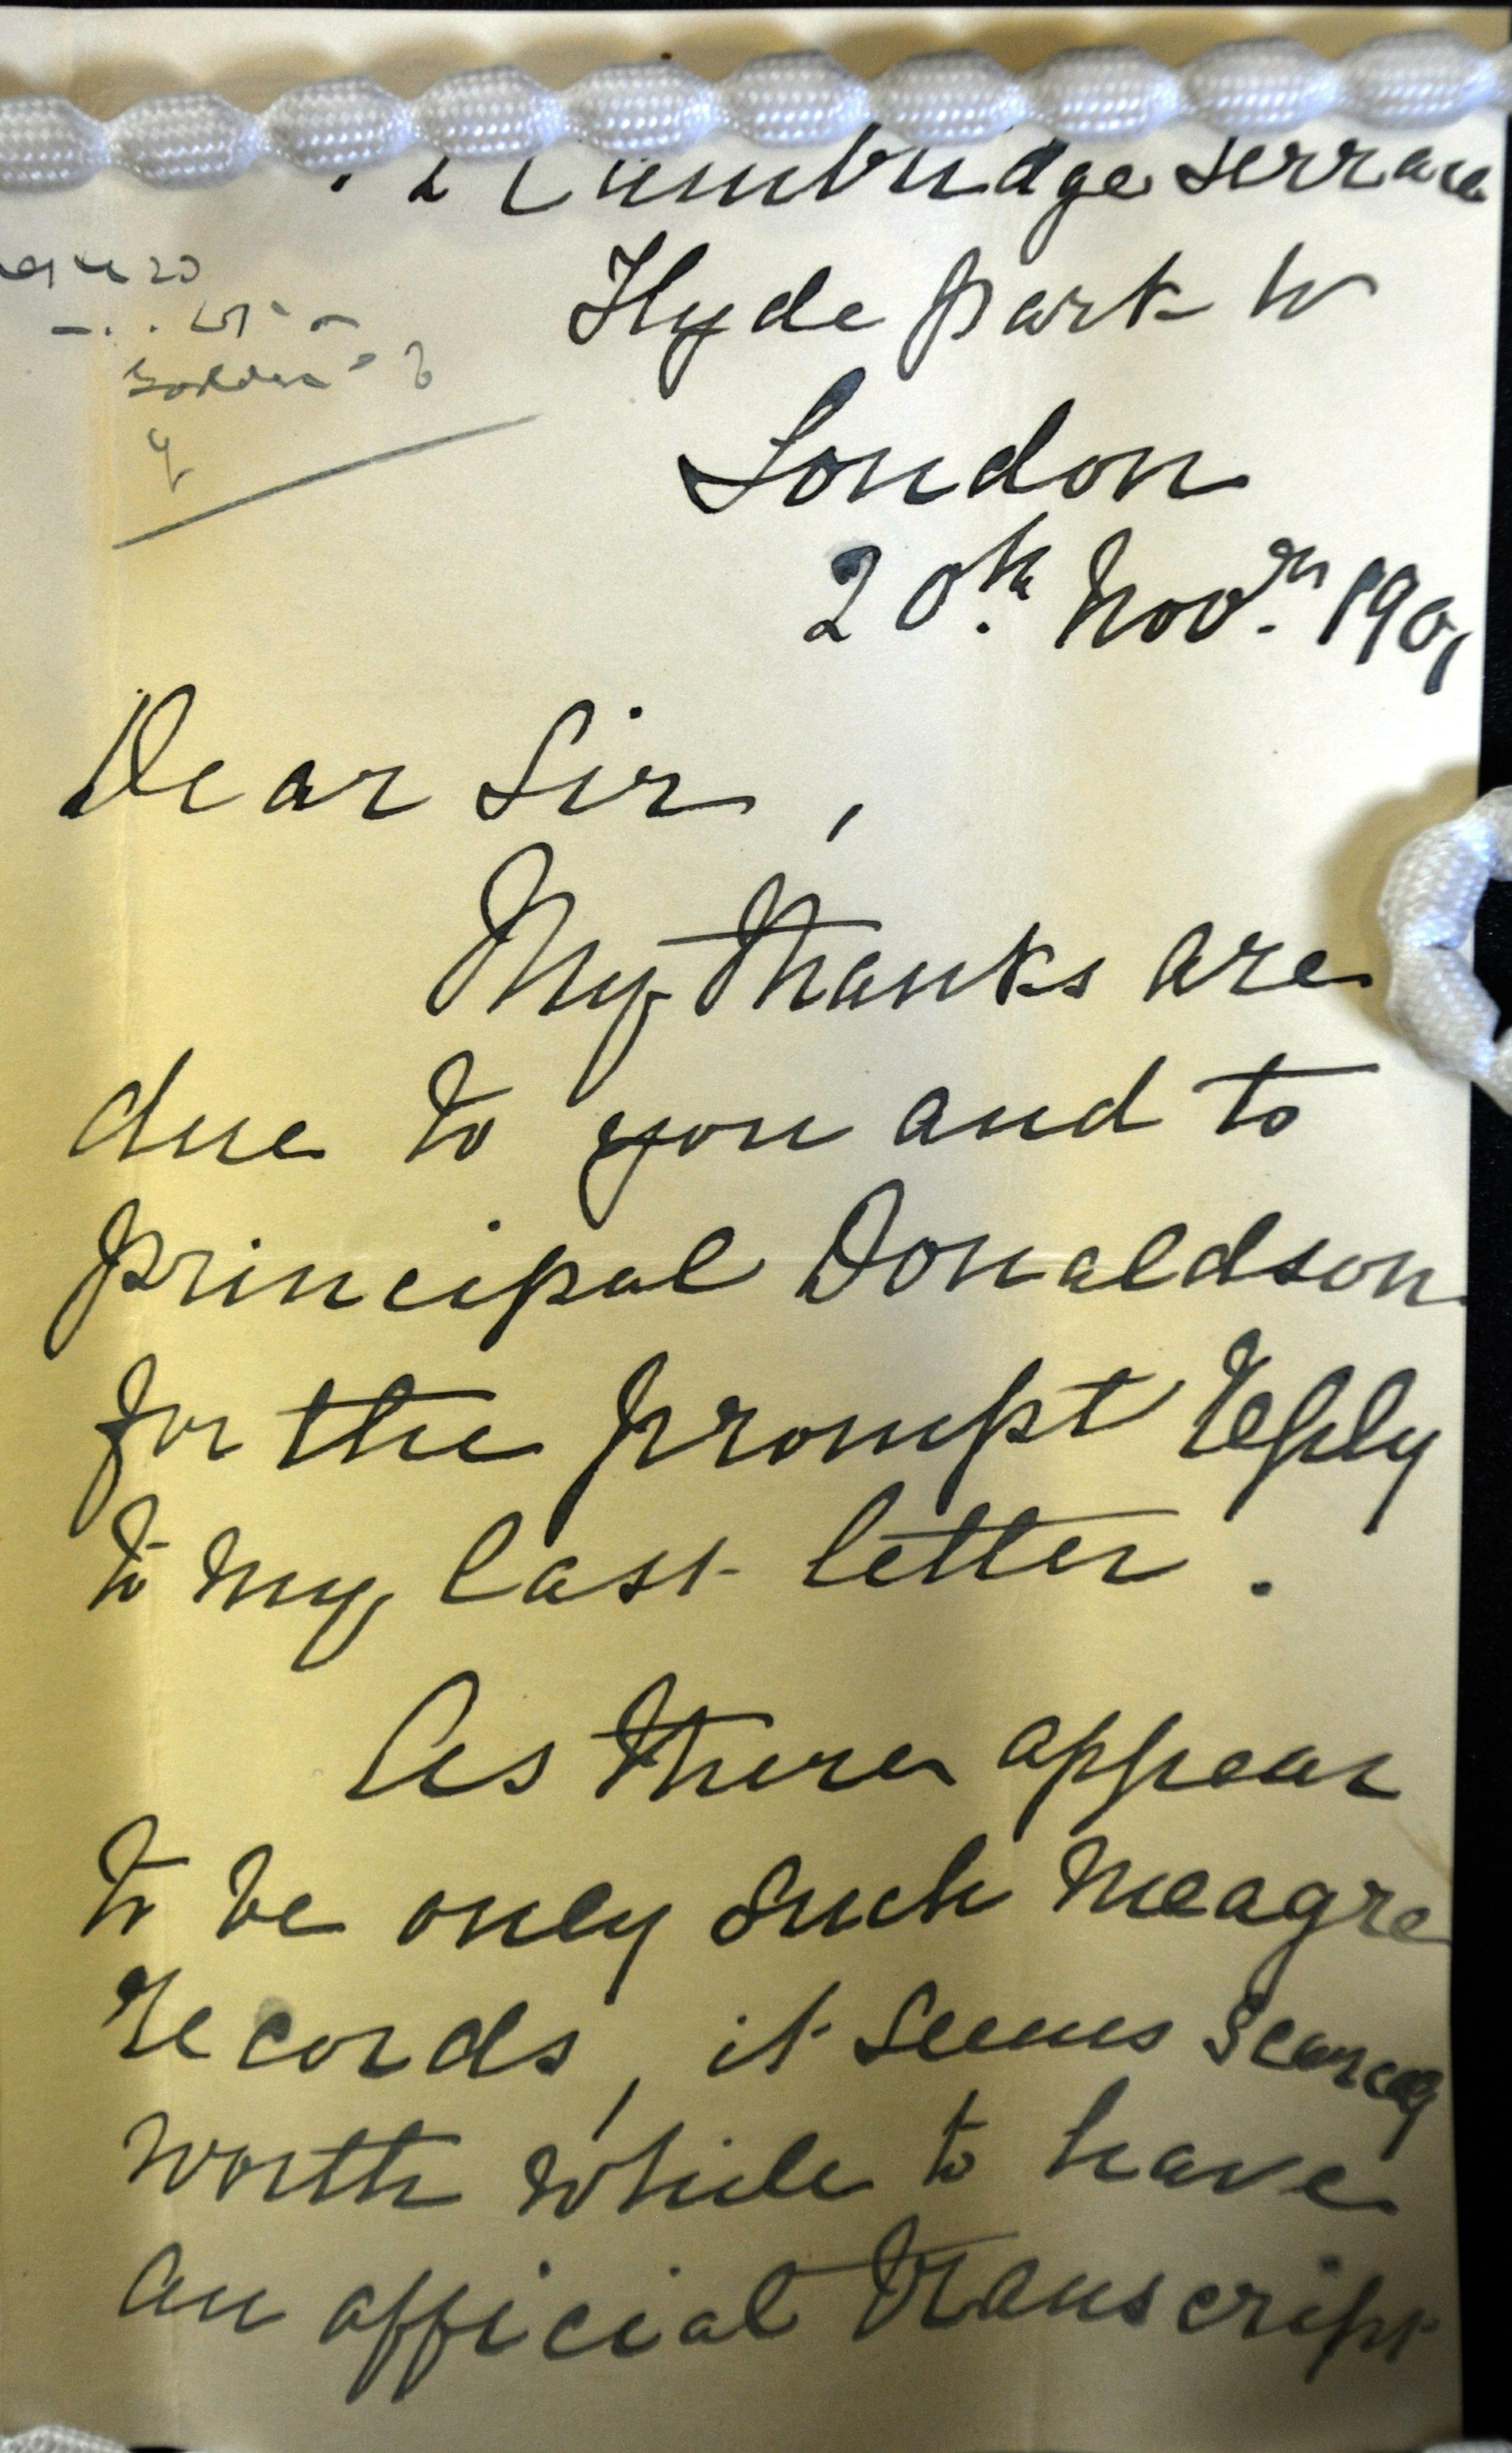 Cambridge Terrace
Hyde Park W
London
20th. Novr. 1901
Dear Sir,
My thanks are
due to you and to
Principal Donaldson
for the prompt reply
to my last letter.
As there appear
to be only such meagre
records, it seems scarcely
worth while to have
an official transcript